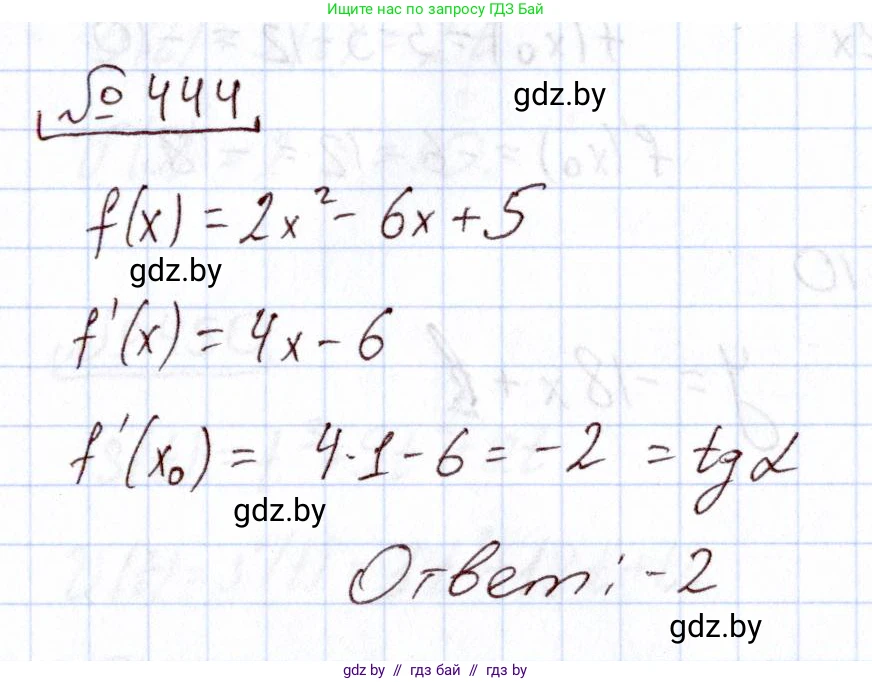 Ищите нас по запросу ГДЗ Бай
№ 444
gdz.by
f(x) = 2x² - 6x + 5
gdz.by
f'(x) = 4x - 6
f'(x₀) = 4·1 - 6 = -2 = tg α
gdz.by
Ответ: -2
gdz.by
gdz by // гдз бай // gdz by